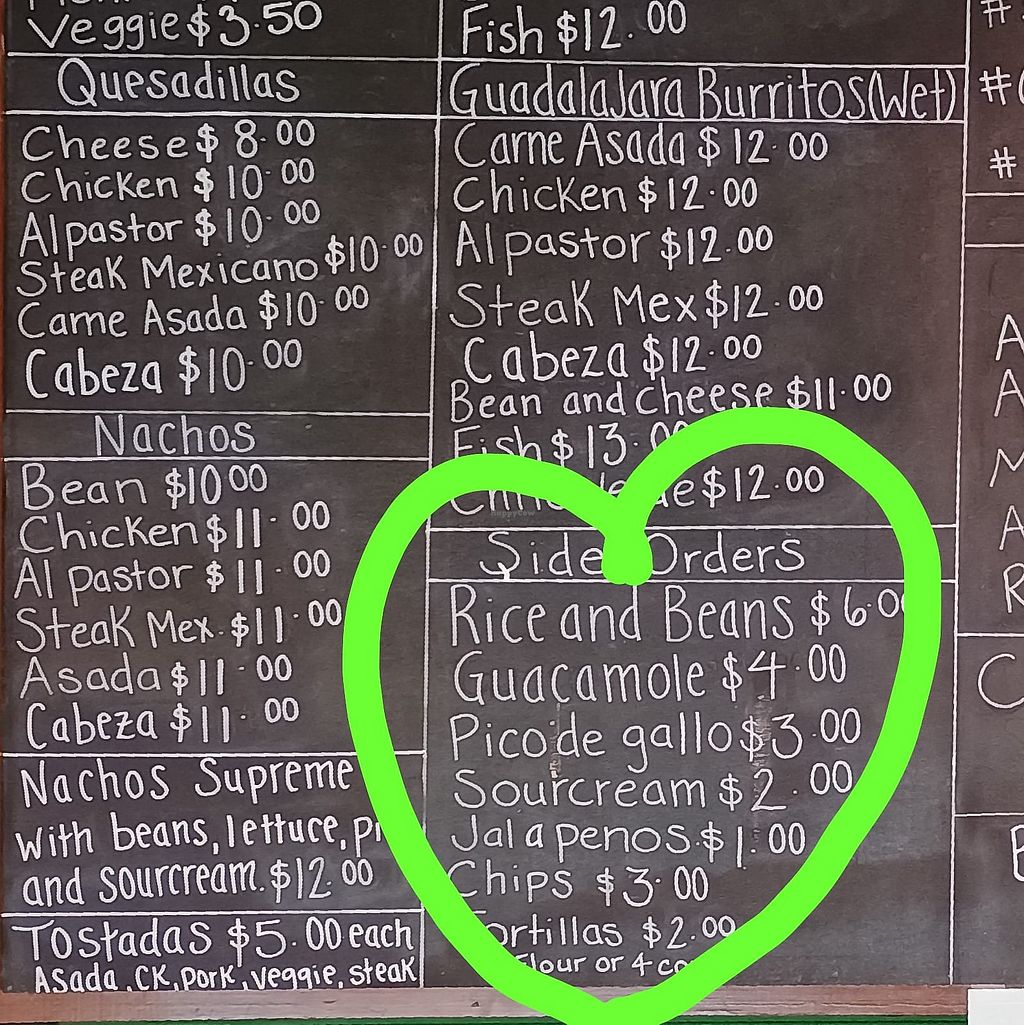 Veggie $3.50
Quesadillas
Cheese $ 8.00
Chicken $10.00
Alpastor $10.00
Steak Mexicano $10.00
Carne Asada $10.00
Cabeza $10.00
Nachos
Bean $10.00
Chicken $11.00
Al pastor $11.00
Steak Mex. $11.00
Asada $11.00
Cabeza $11.00
Nachos Supreme
with beans, lettuce,
and sourcream. $12.00
Tostadas $5.00 each
Asada, CK, pork, veggie, steak
Fish $12.00
Guadalajara Burritos (Wet)
Carne Asada $12.00
Chicken $12.00
Al pastor $12.00
Steak Mex $12.00
Cabeza $12.00
Bean and cheese $11.00
Fish $13.00
$12.00
Side Orders
Rice and Beans $6.00
Guacamole $4.00
Pico de gallo $3.00
Sourcream $2.00
Jalapenos. $1.00
Chips $3.00
Tortillas $2.00
Flour or 4
#
#
#
A
A
M
A
R
C